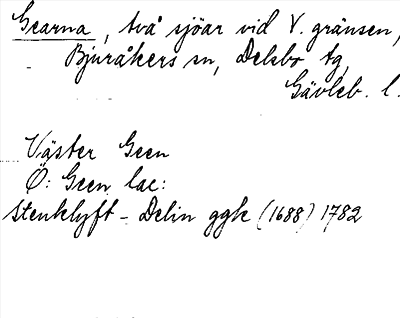 Gearna, två sjöar vid V. gränsen,
Bjuråkers sn, Delsbo tg,
Gävleb. l.
Väster Geen
Ö: Geen lac:
Stenklyft - Delin ggk (1688) 1782